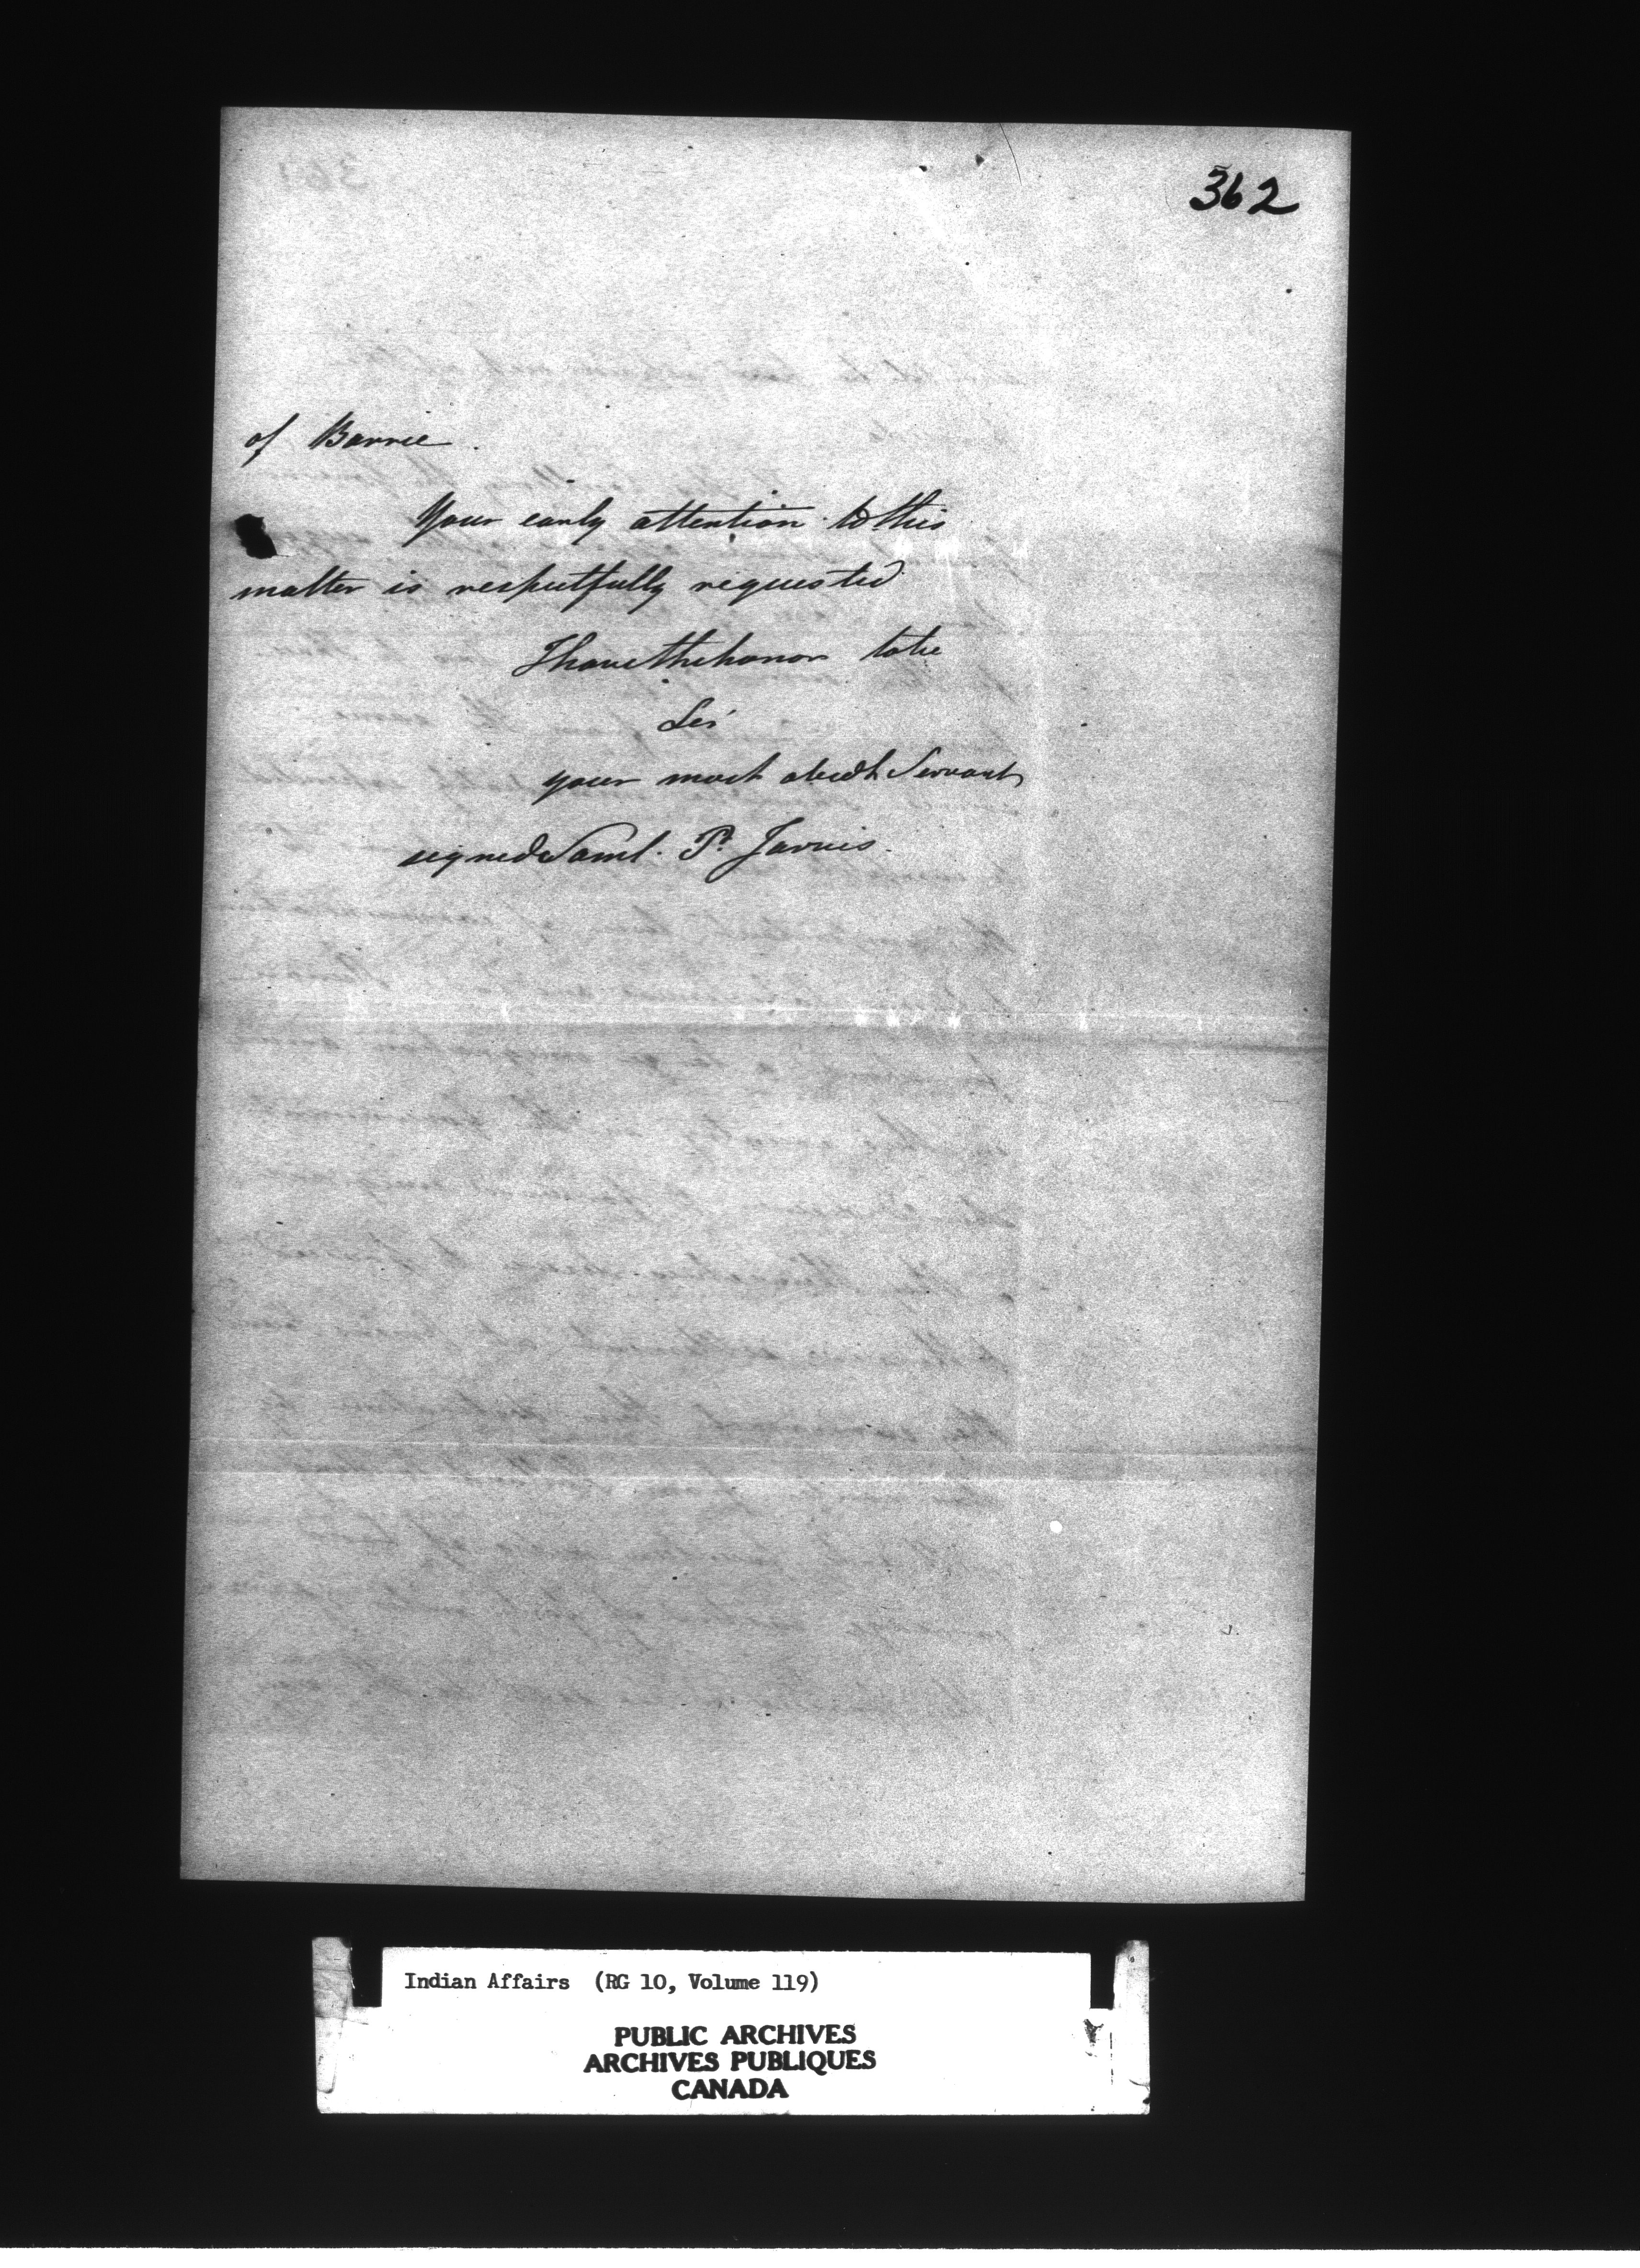 362
of Barrie.
Your early attention to this
matter is respectfully requested
I have the honor to be
Sir
your most obedt Servant
signed Saml. P. Jarvis.
Indian Affairs (RG 10, Volume 119)
PUBLIC ARCHIVES
ARCHIVES PUBLIQUES
CANADA